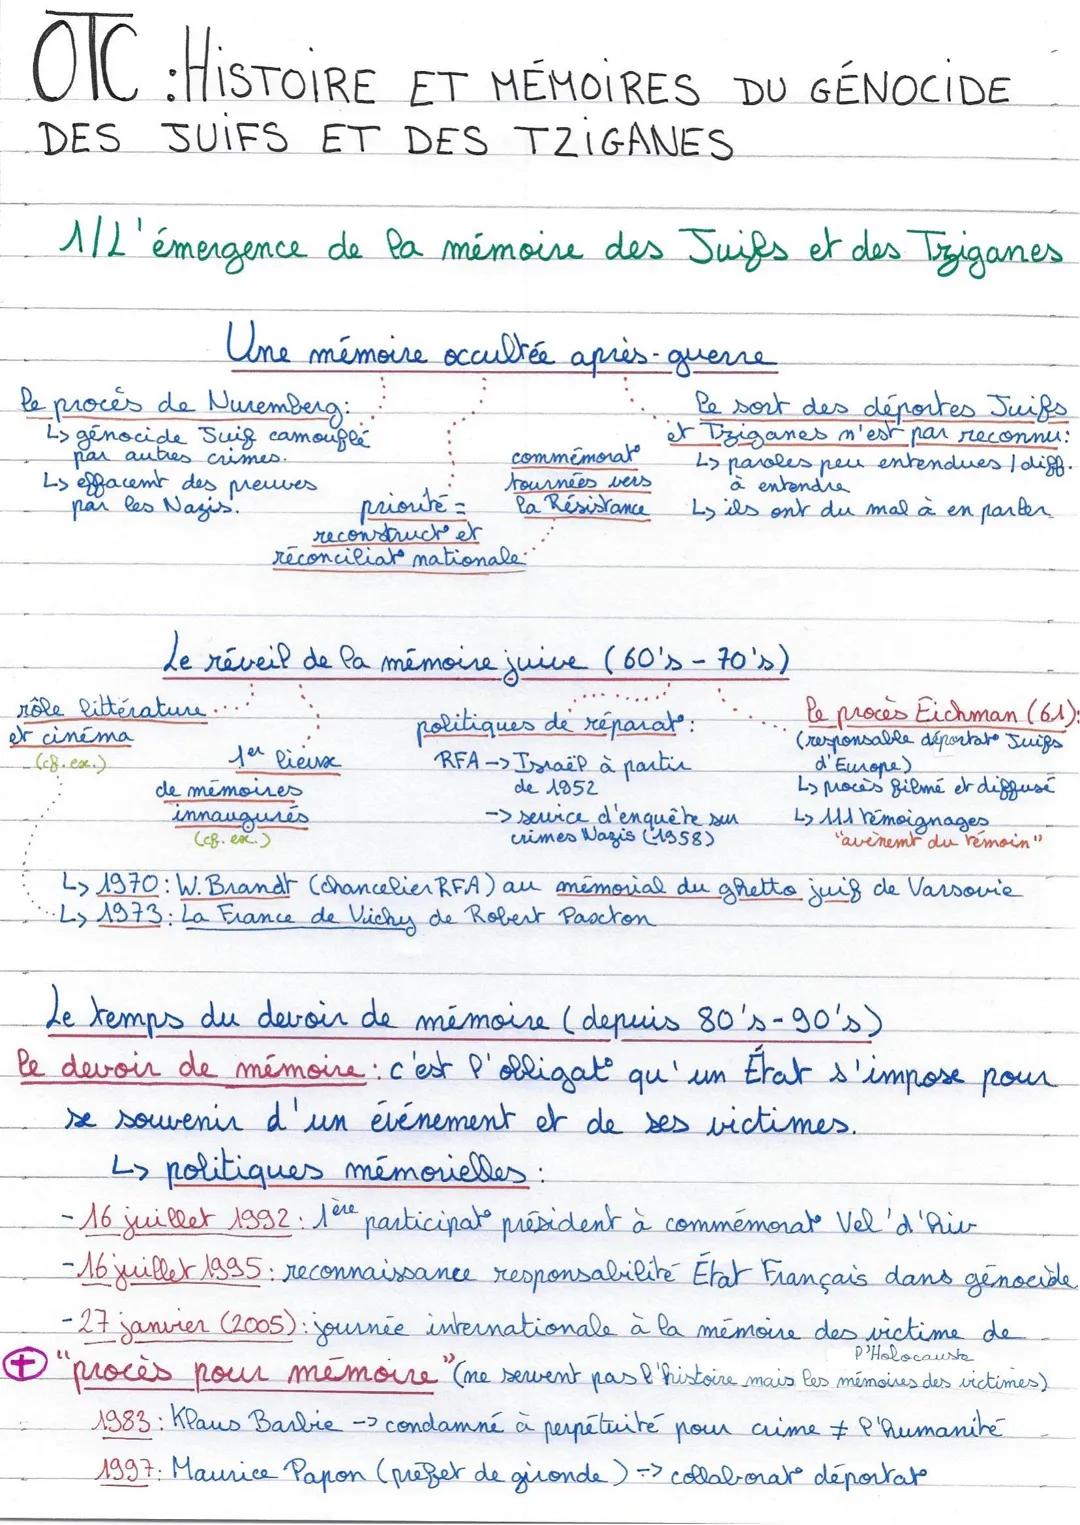 OTC : HISTOIRE ET MÉMOIRES DU GÉNOCIDE
DES JUIFS ET DES TZIGANES
1/ L'émergence de la mémoire des Juifs et des Tziganes
Une mémoire occultée après-guerre
le procès de Nuremberg:
↳ génocide Juif camouflé
par autres crimes.
↳ effacemt des preuves
par les Nazis.
priorité =
reconstruct° et
réconciliat° nationale
commémorat°
tournées vers
la Résistance
le sort des déportés Juifs
et Tziganes n'est par reconnu:
↳ paroles peu entendues / diff.
à entendre
↳ ils ont du mal à en parler
Le réveil de la mémoire juive (60's - 70's)
rôle littérature
et cinéma
(cf. ex.)
1er lieux
de mémoires
innaugurés
(cf. ex.)
politiques de réparat°:
RFA -> Israël à partir
de 1952
-> service d'enquête sur
crimes Nazis (1958)
le procès Eichman (61):
(responsable déportat° Juifs
d'Europe)
↳ procès filmé et diffusé
↳ 111 témoignages
"avènemt du témoin"
↳ 1970: W. Brandt (chancelier RFA) au mémorial du ghetto juif de Varsovie
↳ 1973: La France de Vichy de Robert Paxton
Le temps du devoir de mémoire (depuis 80's-90's)
le devoir de mémoire: c'est l'obligat° qu'un État s'impose pour
se souvenir d'un événement et de ses victimes.
↳ politiques mémorielles:
- 16 juillet 1992: 1ère participat° président à commémorat° Vel'd'Hiv
- 16 juillet 1995: reconnaissance responsabilité État Français dans génocide
- 27 janvier (2005): journée internationale à la mémoire des victime de
l'Holocauste
+ "procès pour mémoire" (ne servent pas l'histoire mais les mémoires des victimes)
1983: Klaus Barbie -> condamné à perpétuité pour crime ≠ l'humanité
1997: Maurice Papon (préfet de gironde) -> collaborat° déportat°